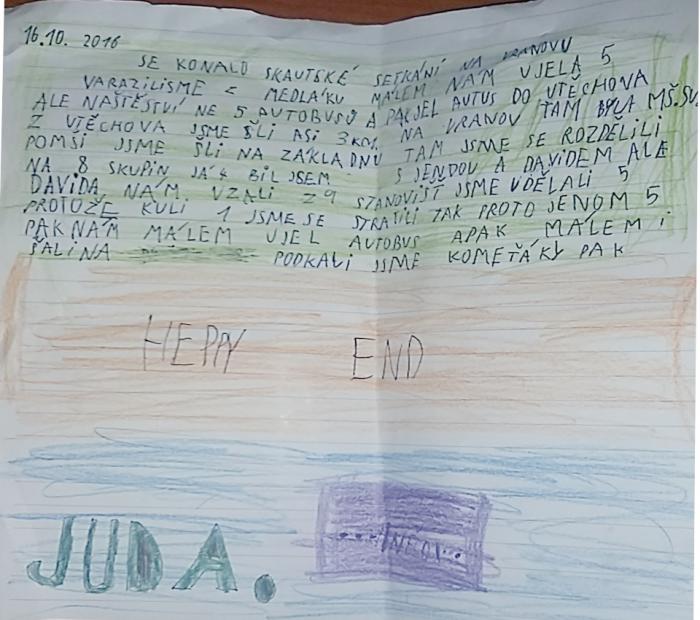 16.10. 2016
SE KONALO SKAUTSKÉ SETKÁNÍ NA VRANOVU
VARAZILISME Z MEDLÁKU MÁLEM NÁM UJELA 5
ALE NAŠTĚSTVÍ NE 5 AUTOBUSU A PAK JEL AUTUS DO UTĚCHOVA
Z UTĚCHOVA JSME ŠLI ASI 3KOL NA VRANOV TAM BYLA MŠ.SV
POMŠI JSME ŠLI NA ZÁKLADNU TAM JSME SE ROZDĚLILI
NA 8 SKUPIN JÁ BIL JSEM S JENDOU A DAVIDEM ALE
DAVIDA NÁM VZALI Z9 STANOVIŠŤ JSME UDĚLALI 5
PROTOŽE KULI 1 JSME SE STRATILI TAK PROTO JENOM 5
PAK NÁM MÁLEM UJEL AUTOBUS APAK MÁLEM i
ŠALINA PODKALI JSME KOMEŤÁKY PAK
HEPPY END
JUDA.